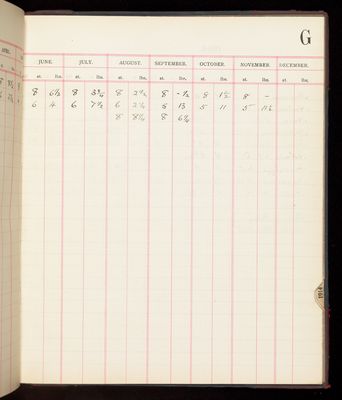 G
APRIL.
JUNE. JULY. AUGUST. SEPTEMBER. OCTOBER. NOVEMBER. DECEMBER.
st. lbs. st. lbs. st. lbs. st. lbs. st. lbs. st. lbs. st. lbs.
8 6½ 8 3¾ 8 2½ 8 -½ 8 1½ 8 -
6 4 6 7½ 6 2¼ 5 13 5 11 5 11½
8 8¼ 8 6¼
1914